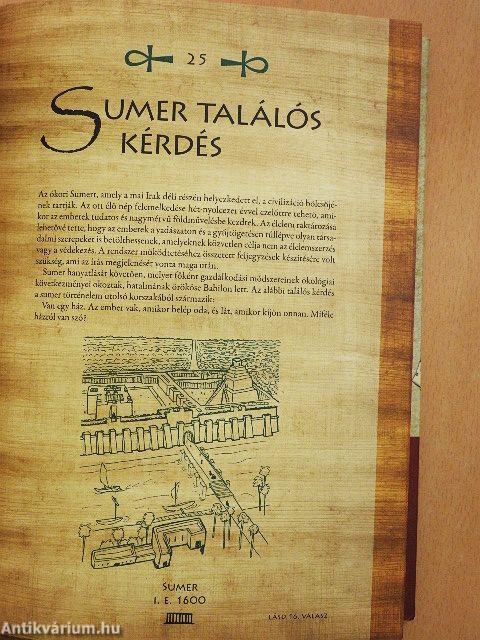 25
SUMER TALÁLÓS
KÉRDÉS
Az ókori Sumert, amely a mai Irak déli részén helyezkedett el, a civilizáció bölcsőjé-
nek tartják. Az ott élő nép felemelkedése hét-nyolcezer évvel ezelőttre tehető, ami-
kor az emberek tudatos és nagymérvű földművelésbe kezdtek. Az élelem raktározása
lehetővé tette, hogy az emberek a vadászaton és a gyűjtögetésen túllépve olyan társa-
dalmi szerepeket is betölthessenek, amelyeknek közvetlen célja nem az élelemszerzés
vagy a védekezés. A rendszer működtetéséhez összetett feljegyzések készítésére volt
szükség, ami az írás megjelenését vonta maga után.
Sumer hanyatlását követően, melyet főként gazdálkodási módszereinek ökológiai
következményei okoztak, hatalmának örököse Babilon lett. Az alábbi találós kérdés
a sumer történelem utolsó korszakából származik:
Van egy ház. Az ember vak, amikor belép oda, és lát, amikor kijön onnan. Miféle
házról van szó?
SUMER
I. E. 1600
LÁSD 16. VÁLASZ
Antikvárium.hu